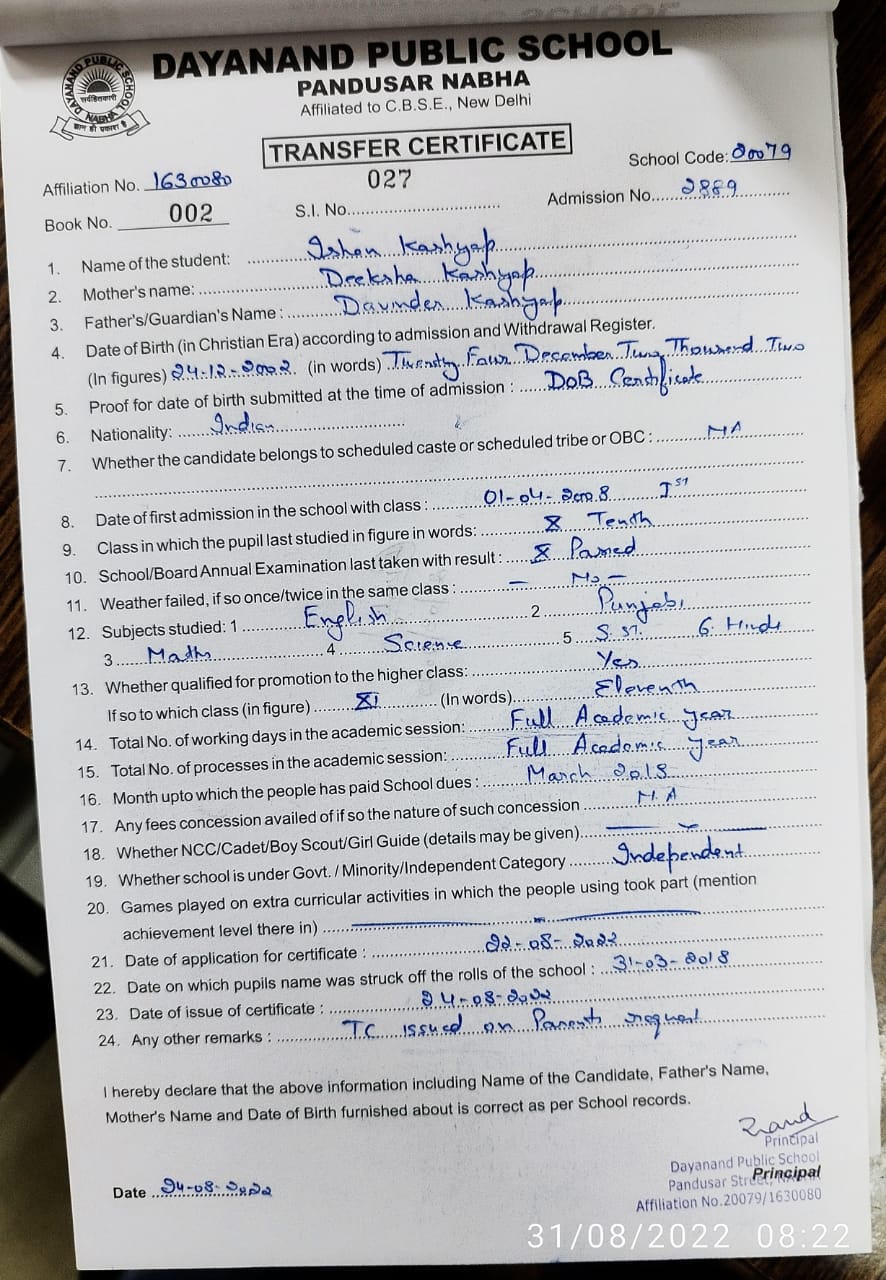 DAYANAND PUBLIC SCHOOL
PANDUSAR NABHA
Affiliated to C.B.S.E., New Delhi
DAYANAND PUBLIC SCHOOL
NABHA
TRANSFER CERTIFICATE
Affiliation No. 1630080 027 School Code: 20079
Book No. 002 S.I. No. Admission No. 2889
1. Name of the student: Ishan Kashyap
2. Mother's name: Deeksha Kashyap
3. Father's/Guardian's Name : Davinder Kashyap
4. Date of Birth (in Christian Era) according to admission and Withdrawal Register.
(In figures) 24-12-2002 (in words) Twenty Four December Two Thousand Two
5. Proof for date of birth submitted at the time of admission : DoB Certificate
6. Nationality: Indian
7. Whether the candidate belongs to scheduled caste or scheduled tribe or OBC : NA
8. Date of first admission in the school with class : 01-04-2008 Ist
9. Class in which the pupil last studied in figure in words: X Tenth
10. School/Board Annual Examination last taken with result : X Passed
11. Weather failed, if so once/twice in the same class : – No –
12. Subjects studied: 1 English 2 Punjabi
3 Maths 4 Science 5 S.St. 6. Hindi
13. Whether qualified for promotion to the higher class: Yes
If so to which class (in figure) XI (In words) Eleventh
14. Total No. of working days in the academic session: Full Academic year
15. Total No. of processes in the academic session: Full Academic year
16. Month upto which the people has paid School dues : March 2018
17. Any fees concession availed of if so the nature of such concession N.A
18. Whether NCC/Cadet/Boy Scout/Girl Guide (details may be given)
19. Whether school is under Govt. / Minority/Independent Category Independent
20. Games played on extra curricular activities in which the people using took part (mention
achievement level there in)
21. Date of application for certificate : 22-08-2022
22. Date on which pupils name was struck off the rolls of the school : 31-03-2018
23. Date of issue of certificate : 24-08-2022
24. Any other remarks : TC issued on Parents request
I hereby declare that the above information including Name of the Candidate, Father's Name,
Mother's Name and Date of Birth furnished about is correct as per School records.
Principal
Dayanand Public School
Principal
Pandusar Street,
Affiliation No.20079/1630080
Date 24-08-2022
31/08/2022 08:22